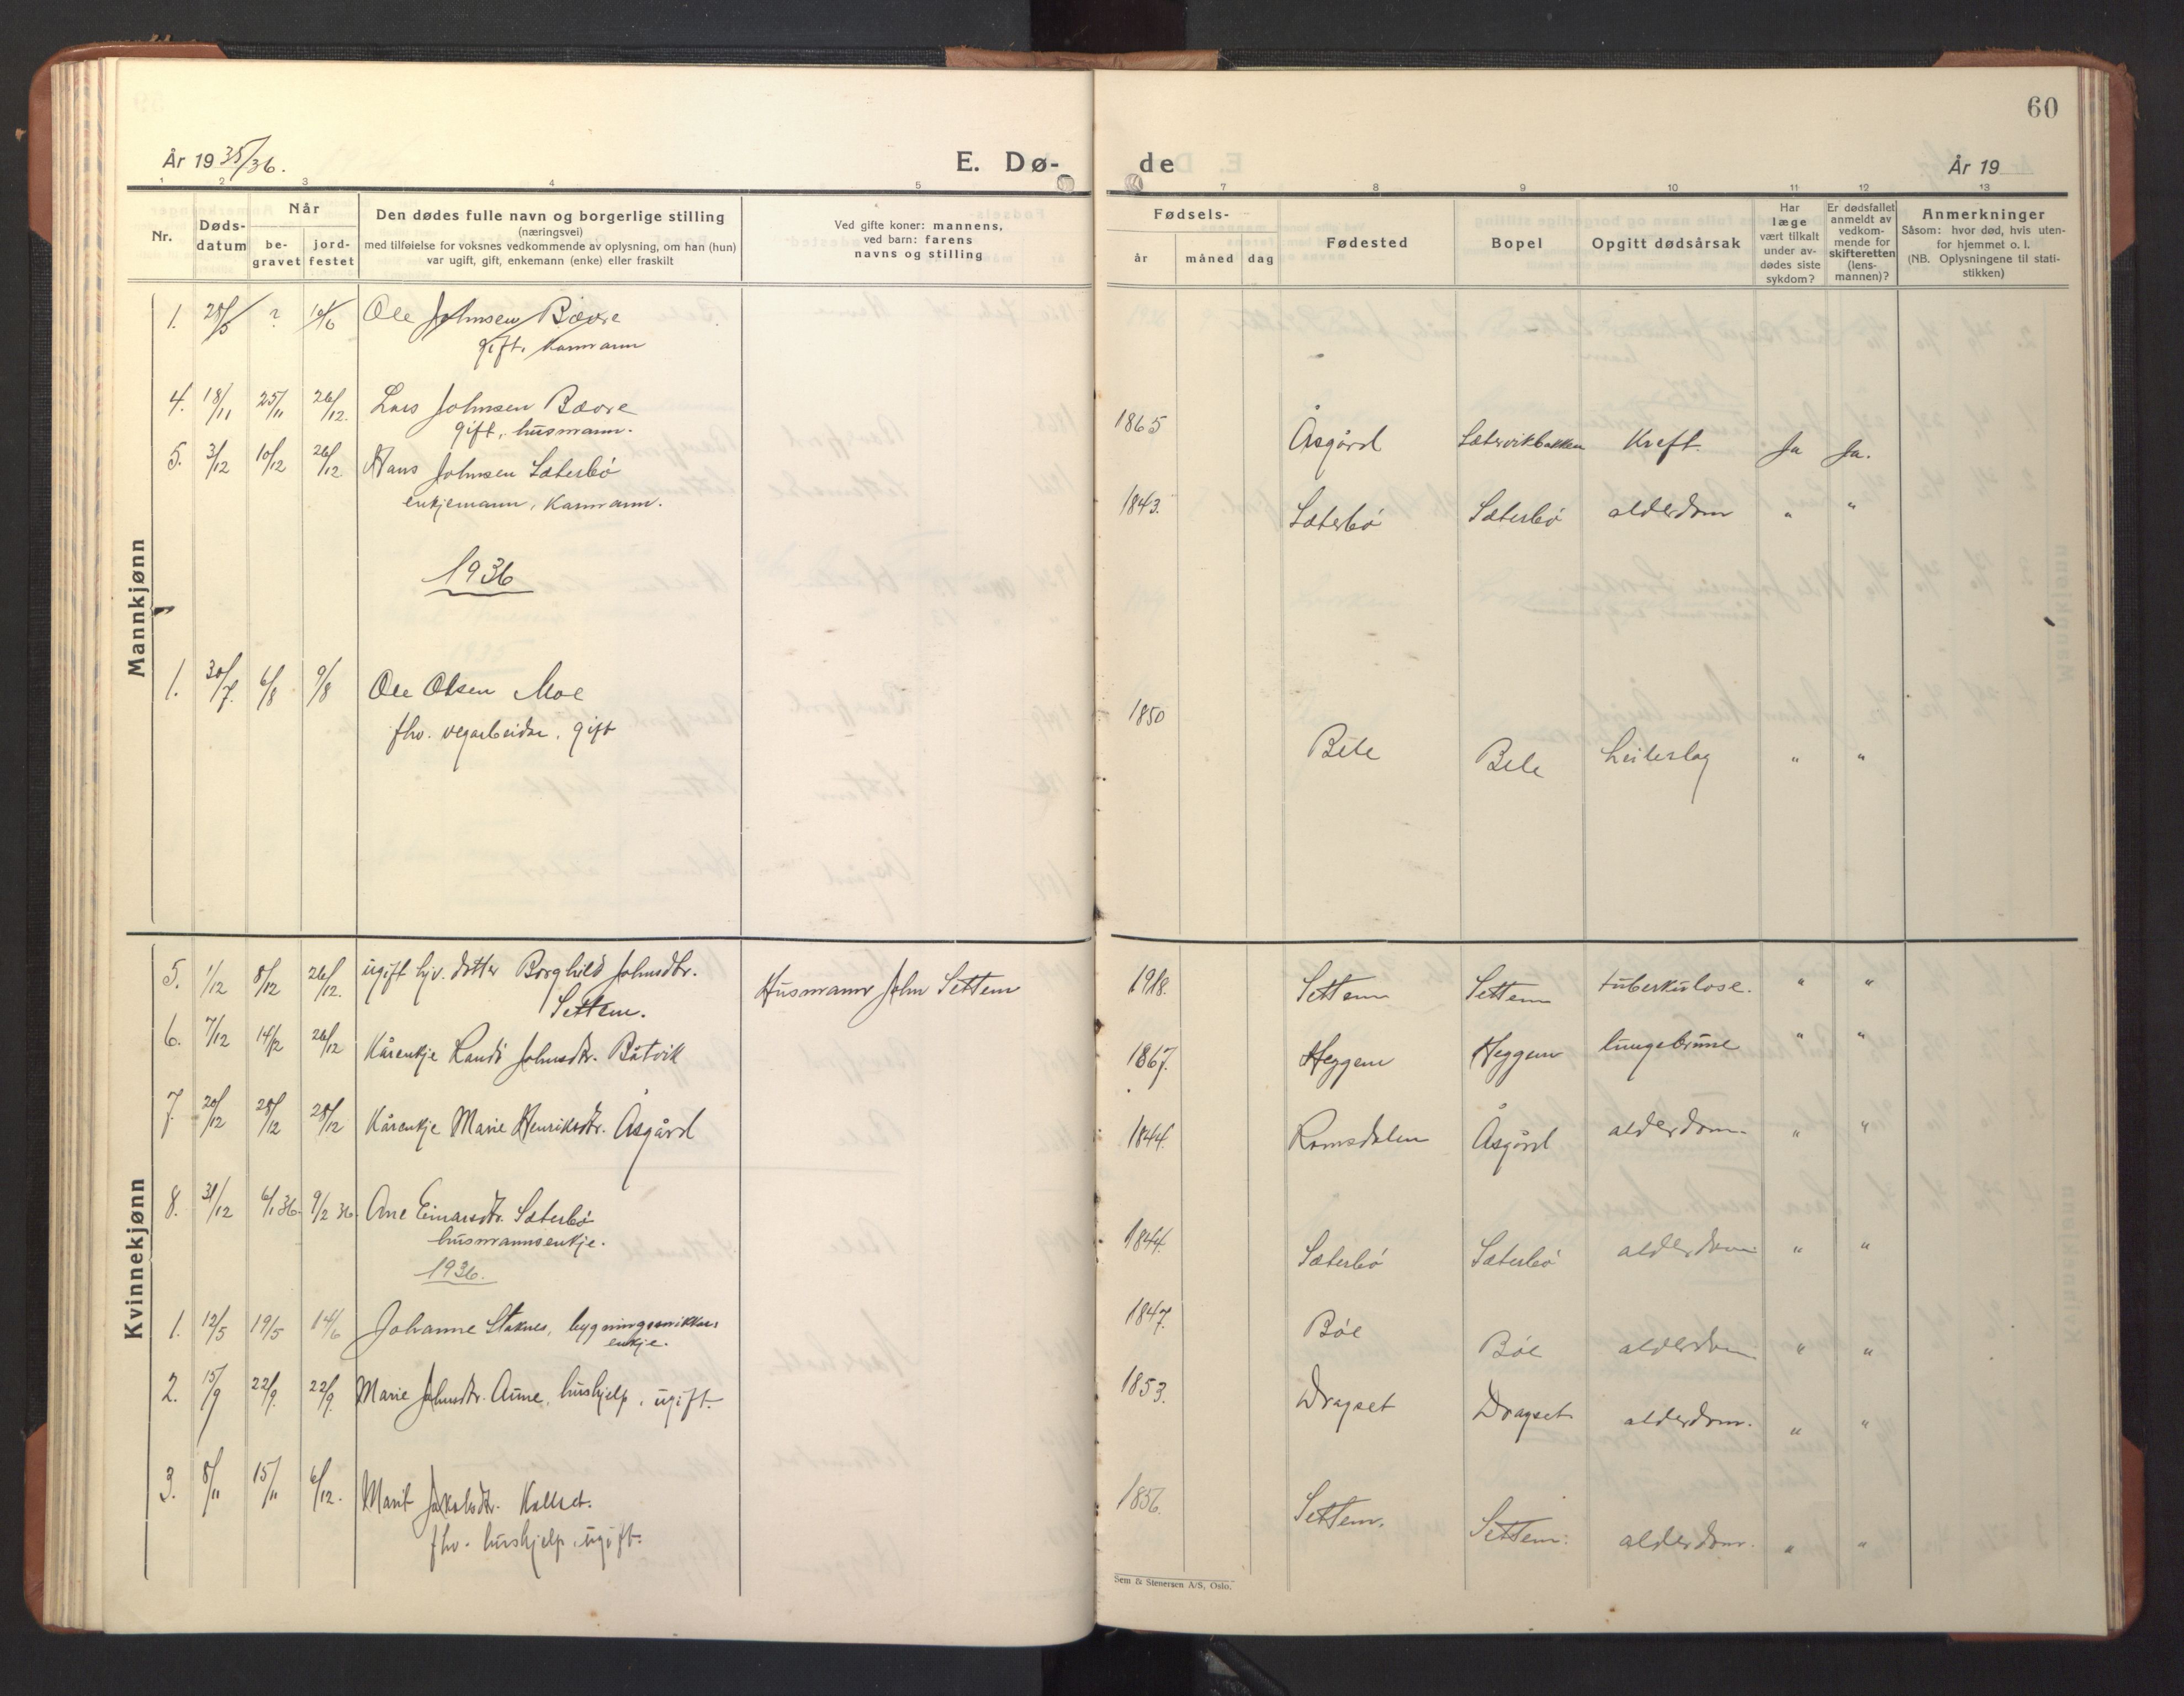 60
År 19 35/36.
E. Dø-
de
År 19
1 2 3 4 5
7 8 9 10 11 12 13
Nr.
Døds-
datum
Når
be-
gravet
jord-
festet
Den dødes fulle navn og borgerlige stilling
(næringsvei)
med tilføielse for voksnes vedkommende av oplysning, om han (hun)
var ugift, gift, enkemann (enke) eller fraskilt
Ved gifte koner: mannens,
ved barn: farens
navns og stilling
Fødsels-
år måned dag
Fødested
Bopel
Opgitt dødsårsak
Har
læge
vært tilkalt
under av-
dødes siste
sykdom?
Er dødsfallet
anmeldt av
vedkom-
mende for
skifteretten
(lens-
mannen)?
Anmerkninger
Såsom: hvor død, hvis uten-
for hjemmet o. l.
(NB. Oplysningene til stati-
stikken)
Mannkjønn
1. 28/5 ? 14/6 Ole Johnsen Bævre
gift, kårmann
4. 18/11 25/11 26/12. Lars Johnsen Bævre 1865 Åsgård Sætervikbakken Kreft. Ja Ja.
gift, husmann.
5. 3/12 10/12 26/12 Hans Johnsen Sæterbö 1843. Sæterbö Sæterbö alderdom " "
enkjemann, kårmann.
1936
1. 30/7. 6/8 9/8 Ole Olsen Moe 1850 Bele Bele heileslag " "
fhv. vegarbeider, gift
Kvinnekjønn
5. 1/12 8/12 26/12. ugift hjv. dotter Borghild Johnsdtr. Husmann John Settem 1918. Settem Settem tuberkulose. " "
Settem.
6. 7/12 14/12 26/12 Kårenkje Randi Johnsdtr. Båtvik 1867. Heggem Heggem lungebrune " "
7. 20/12 28/12 28/12 Kårenkje Marie Henriksdtr. Åsgård 1844. Romsdalen Åsgård alderdom. " "
8. 31/12 6/1 36. 9/2 36. Ane Einarsdtr. Sæterbö 1844. Sæterbö Sæterbö alderdom " "
husmannsenkje.
1936.
1. 12/5 19/5 14/6 Johanne Staknes, bygningssnikkers 1847. Böe Böe alderdom " "
enkje.
2. 15/9 22/9. 22/9. Marie Johnsdtr. Aune, hushjelp, ugift. 1853. Dragset Dragset alderdom. " "
3. 8/11 15/11 6/12. Marit Jakobsdtr. Kallset. 1856. Settem. Settem. alderdom. " "
fhv. hushjelp, ugift.
Sem & Stenersen A/S, Oslo.